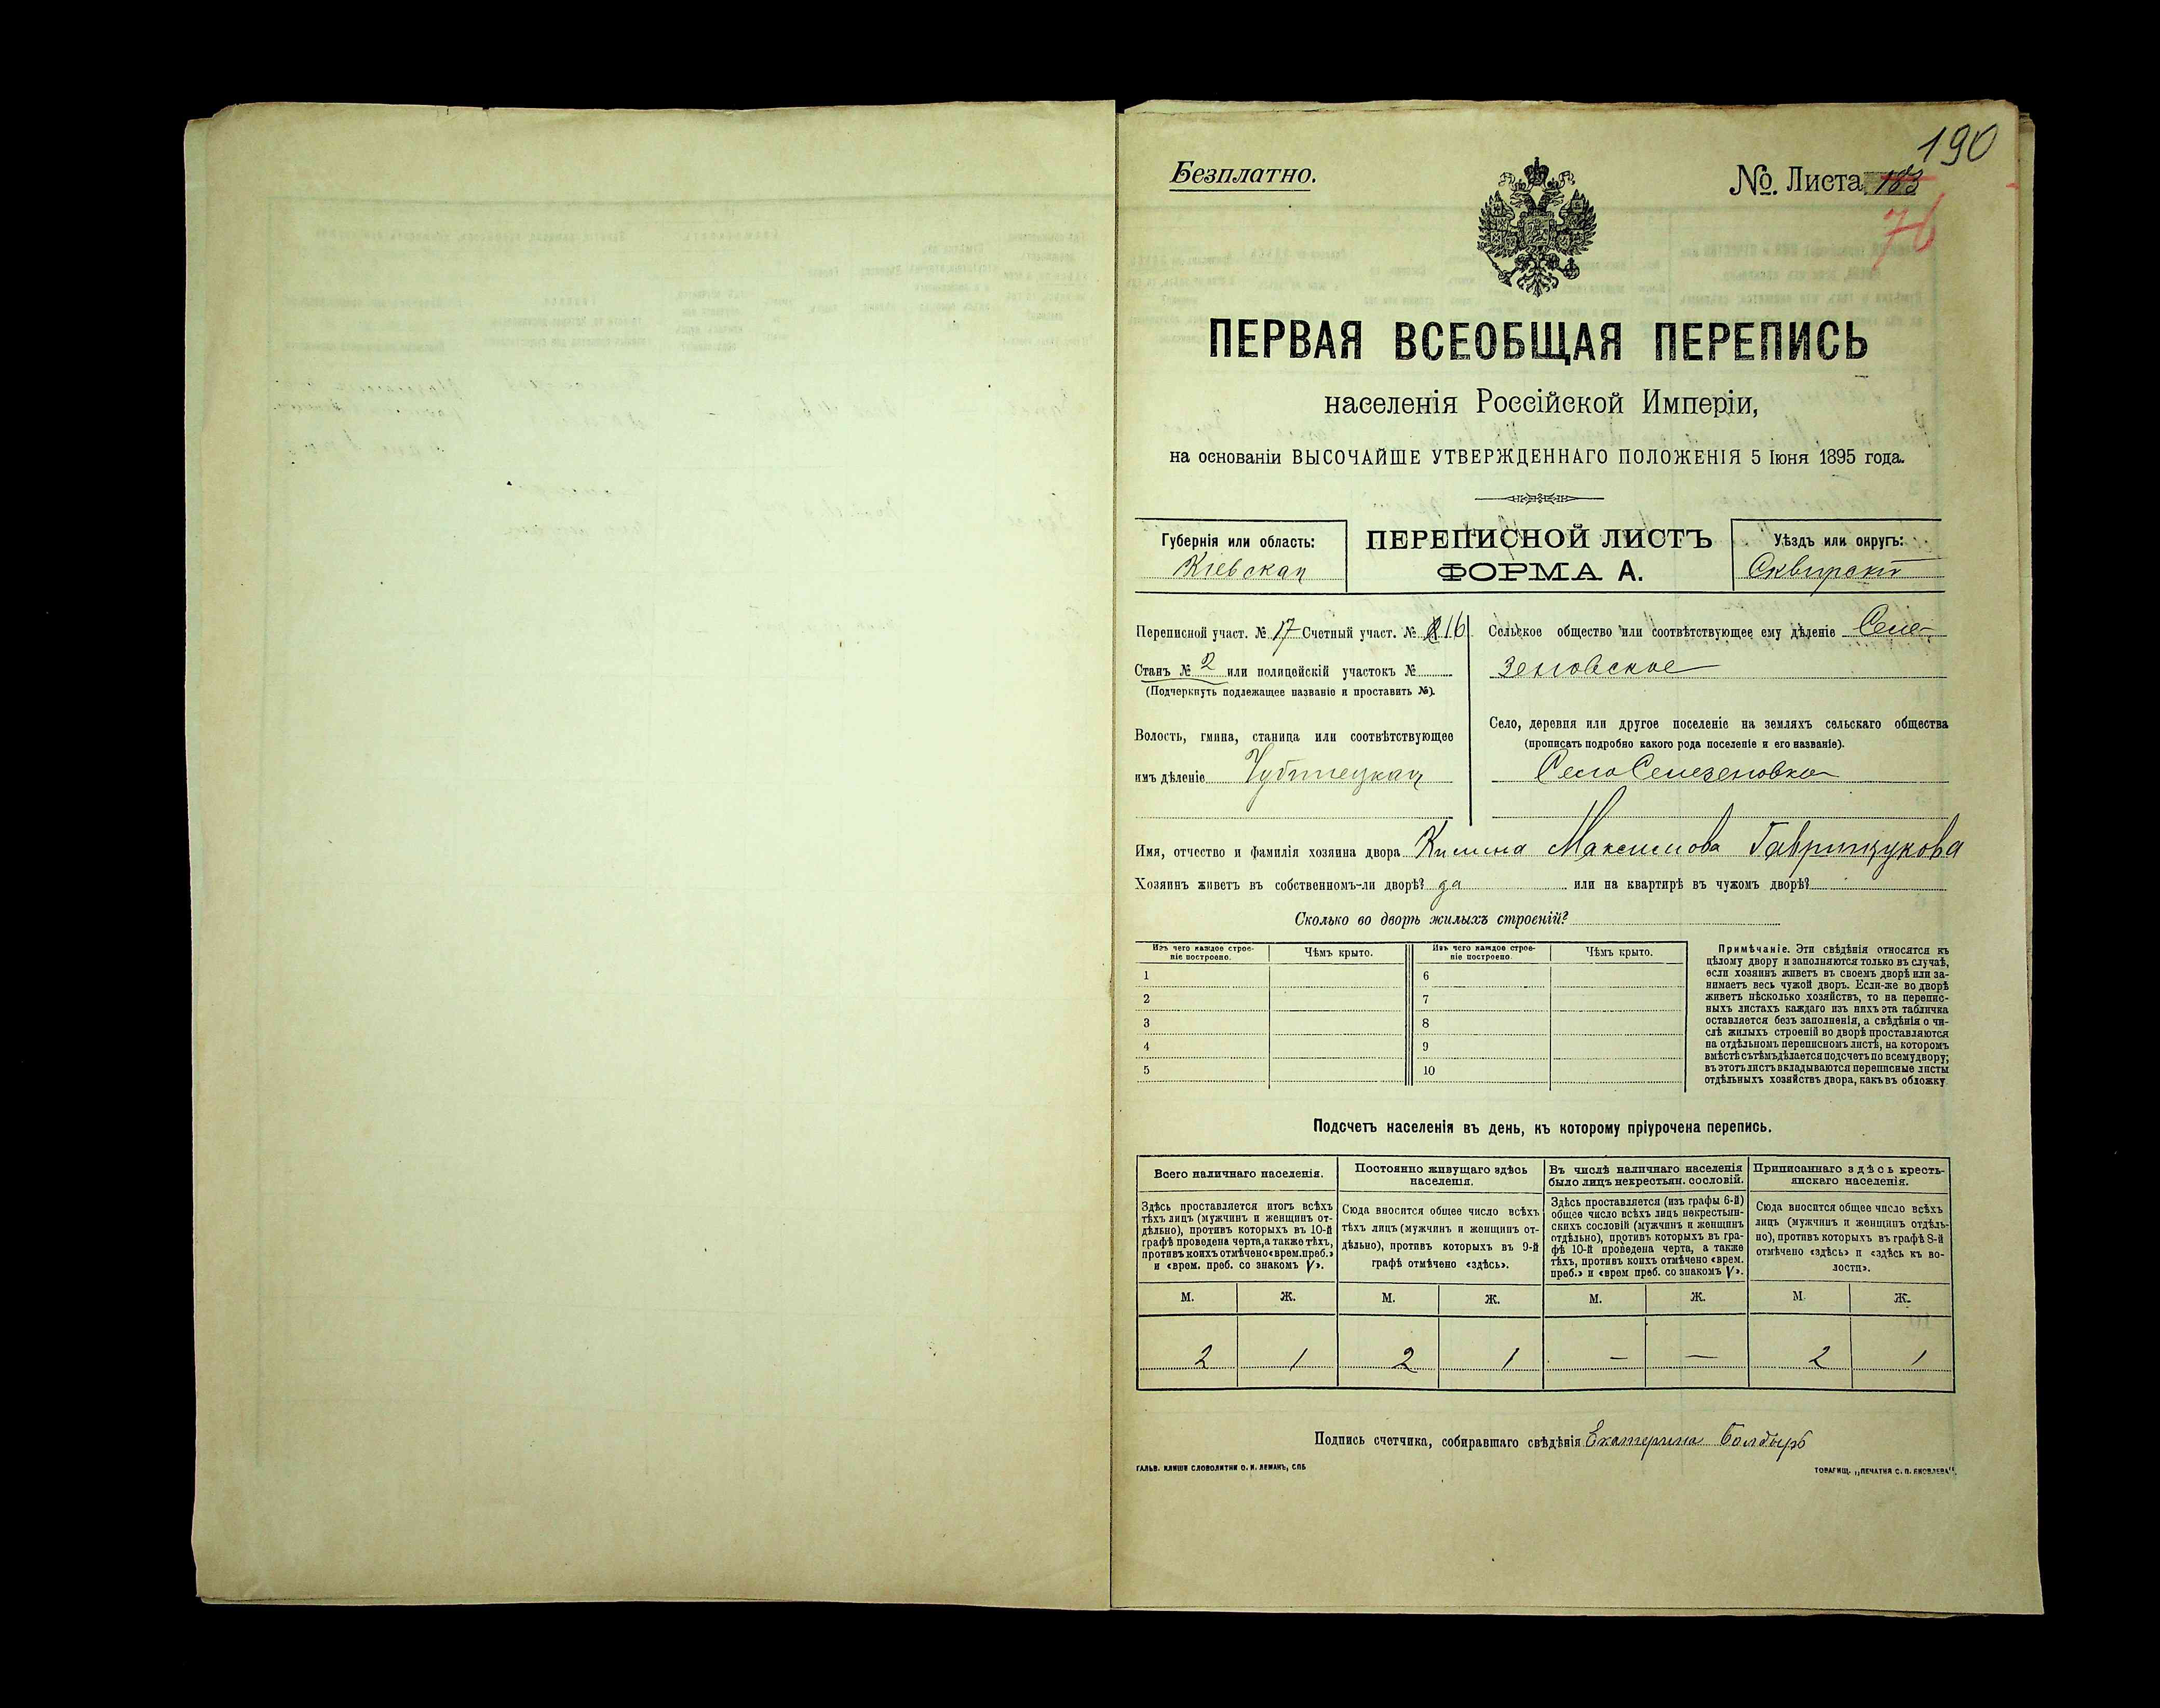 190
Безплатно.
№. Листа 183
76
ПЕРВАЯ ВСЕОБЩАЯ ПЕРЕПИСЬ
населенія Россійской Имперіи,
на основаніи ВЫСОЧАЙШЕ УТВЕРЖДЕННАГО ПОЛОЖЕНІЯ 5 Іюня 1895 года.
Губернія или область:
Кіевская
ПЕРЕПИСНОЙ ЛИСТЪ
ФОРМА А.
Уѣздъ или округъ:
Сквирскій
Переписной участ. № 17 Счетный участ. № 16
Станъ № 2 или полицейскій участокъ №
(Подчеркнуть подлежащее названіе и проставить №).
Волость, гмина, станица или соотвѣтствующее
имъ дѣленіе Чубинецкая
Сельское общество или соотвѣтствующее ему дѣленіе Селе-
зеновское
Село, деревня или другое поселеніе на земляхъ сельскаго общества
(прописать подробно какого рода поселеніе и его названіе).
Село Селезеновка
Имя, отчество и фамилія хозяина двора Килина Максимова Гаврищукова
Хозяинъ живетъ въ собственномъ-ли дворѣ? да или на квартирѣ въ чужомъ дворѣ?
Сколько во дворѣ жилыхъ строеній?
Изъ чего каждое строе-
ніе построено.
Чѣмъ крыто.
Изъ чего каждое строе-
ніе построено.
Чѣмъ крыто.
1
2
3
4
5
6
7
8
9
10
Примѣчаніе. Эти свѣдѣнія относятся къ
цѣлому двору и заполняются только въ случаѣ,
если хозяинъ живетъ въ своемъ дворѣ или за-
нимаетъ весь чужой дворъ. Если-же во дворѣ
живетъ нѣсколько хозяйствъ, то на перепис-
ныхъ листахъ каждаго изъ нихъ эта табличка
оставляется безъ заполненія, а свѣдѣнія о чи-
слѣ жилыхъ строеній во дворѣ проставляются
на отдѣльномъ переписномъ листѣ, на которомъ
вмѣстѣ съ тѣмъ дѣлается подсчетъ по всему двору;
въ этотъ листъ вкладываются переписные листы
отдѣльныхъ хозяйствъ двора, какъ въ обложку
Подсчетъ населенія въ день, къ которому пріурочена перепись.
Всего наличнаго населенія.
Здѣсь проставляется итогъ всѣхъ
тѣхъ лицъ (мужчинъ и женщинъ от-
дѣльно), противъ которыхъ въ 10-й
графѣ проведена черта, а также тѣхъ,
противъ коихъ отмѣчено «врем. преб.»
и «врем. преб. со знакомъ V».
Постоянно живущаго здѣсь
населенія.
Сюда вносится общее число всѣхъ
тѣхъ лицъ (мужчинъ и женщинъ от-
дѣльно), противъ которыхъ въ 9-й
графѣ отмѣчено «здѣсь».
Въ числѣ наличнаго населенія
было лицъ некрестьян. сословій.
Здѣсь проставляется (изъ графы 6-й)
общее число всѣхъ лицъ некрестьян-
скихъ сословій (мужчинъ и женщинъ
отдѣльно), противъ которыхъ въ гра-
фѣ 10-й проведена черта, а также
тѣхъ, противъ коихъ отмѣчено «врем.
преб.» и «врем преб. со знакомъ V».
Приписаннаго здѣсь кресть-
янскаго населенія.
Сюда вносится общее число всѣхъ
лицъ (мужчинъ и женщинъ отдѣль-
но), противъ которыхъ въ графѣ 8-й
отмѣчено «здѣсь» и «здѣсь къ во-
лости».
М. Ж. М. Ж. М. Ж. М. Ж.
2 1 2 1 — — 2 1
Подпись счетчика, собиравшаго свѣдѣнія Екатерина Болдырь
ГАЛЬВ. КЛИШЕ СЛОВОЛИТНИ О. И. ЛЕМАНЪ, СПБ
ТОВАРИЩ. „ПЕЧАТНЯ С. П. ЯКОВЛЕВА“.